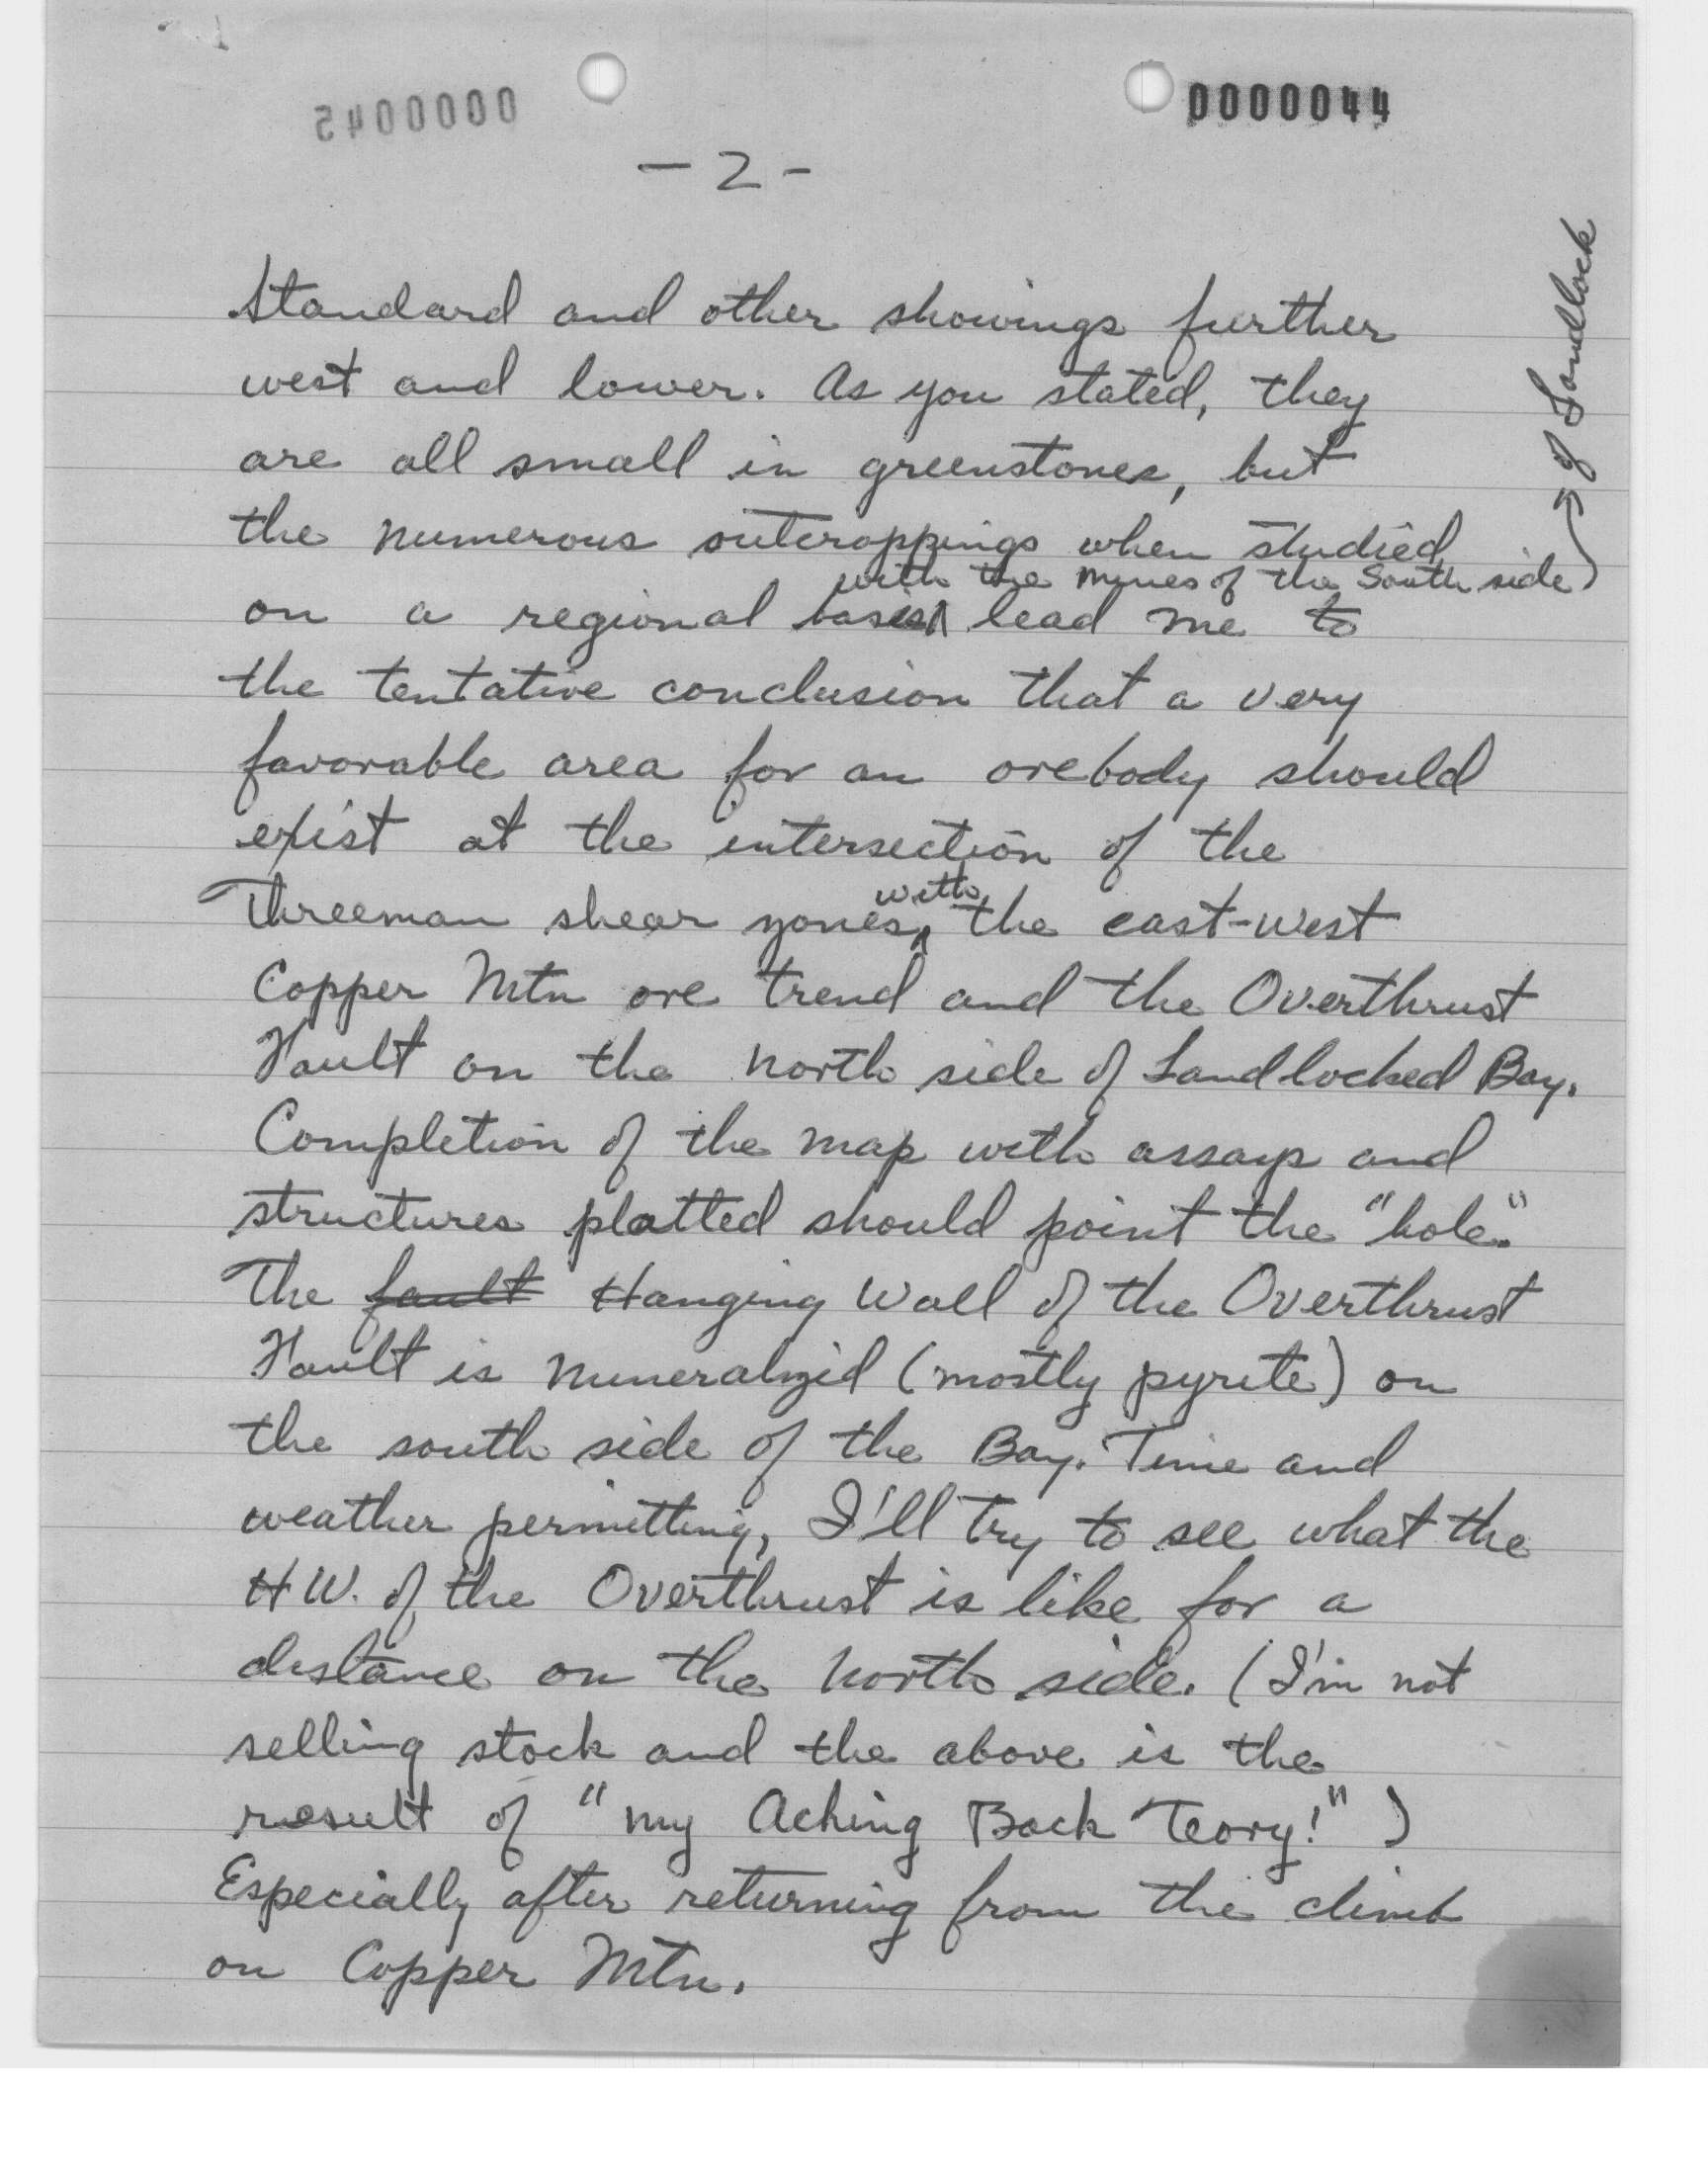 0000045
0000044
- 2 -
Standard and other showings further
west and lower. As you stated, they
are all small in greenstones, but
the numerous outcroppings when studied
with the mines of the South side
of Landlock
on a regional basis lead me to
the tentative conclusion that a very
favorable area for an orebody should
exist at the intersection of the
Threeman shear zones, with the east-west
Copper Mtn ore trend and the Overthrust
Fault on the north side of Landlocked Bay.
Completion of the map with assays and
structures platted should point the "hole."
The fault Hanging Wall of the Overthrust
Fault is mineralized (mostly pyrite) on
the south side of the Bay. Time and
weather permitting, I'll try to see what the
H W. of the Overthrust is like for a
distance on the north side. (I'm not
selling stock and the above is the
result of "my Aching Back Teory!")
Especially after returning from the climb
on Copper Mtn.